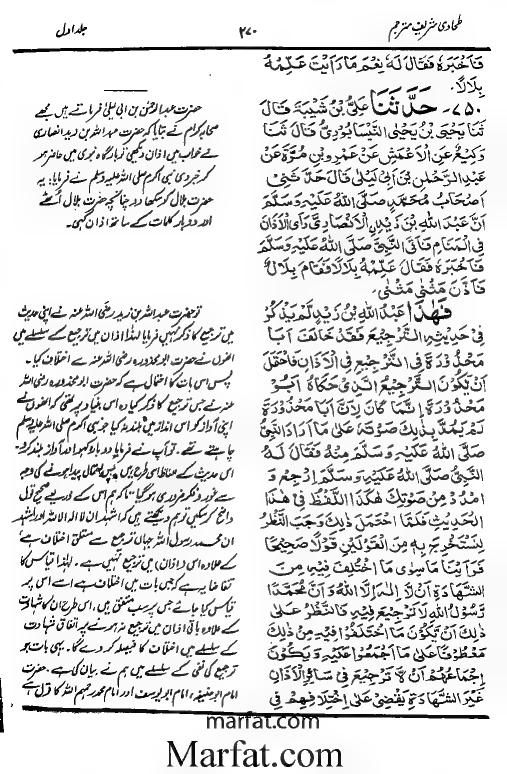 طحاوی شریف مترجم
۲۷۰
جلد اول
فَأَخْبَرَهُ فَقَالَ لَهُ نِعْمَ مَا رَأَيْتَ عَلِّمْهُ
بِلَالًا۔
۷۵۰۔ حَدَّثَنَا عَلِيُّ بْنُ شَيْبَةَ قَالَ
ثَنَا يَحْيَى بْنُ يَحْيَى النَّيْسَابُورِيُّ قَالَ ثَنَا
وَكِيعٌ عَنِ الْأَعْمَشِ عَنْ عَمْرِو بْنِ مُرَّةَ عَنْ
عَبْدِ الرَّحْمٰنِ بْنِ أَبِي لَيْلَى قَالَ حَدَّثَنِي
أَصْحَابُ مُحَمَّدٍ صَلَّى اللهُ عَلَيْهِ وَسَلَّمَ
أَنَّ عَبْدَ اللهِ بْنَ زَيْدٍ الْأَنْصَارِيَّ رَأَى الْأَذَانَ
فِي الْمَنَامِ فَأَتَى النَّبِيَّ صَلَّى اللهُ عَلَيْهِ وَسَلَّمَ
فَأَخْبَرَهُ فَقَالَ عَلِّمْهُ بِلَالًا فَقَامَ بِلَالٌ
فَأَذَّنَ مَثْنٰى مَثْنٰى۔
فَهٰذَا عَبْدُ اللهِ بْنُ زَيْدٍ لَمْ يَذْكُرْ
فِي حَدِيثِهِ التَّرْجِيعَ فَقَدْ خَالَفَ أَبَا
مَحْذُورَةَ فِي التَّرْجِيعِ فِي الْأَذَانِ فَاحْتَمَلَ
أَنْ يَكُونَ التَّرْجِيعُ الَّذِي حَكَاهُ أَبُو
مَحْذُورَةَ إِنَّمَا كَانَ لِأَنَّ أَبَا مَحْذُورَةَ
لَمْ يَمُدَّ بِذٰلِكَ صَوْتَهُ عَلَى مَا أَرَادَ النَّبِيُّ
صَلَّى اللهُ عَلَيْهِ وَسَلَّمَ مِنْهُ فَقَالَ لَهُ
النَّبِيُّ صَلَّى اللهُ عَلَيْهِ وَسَلَّمَ ارْجِعْ وَ
امْدُدْ مِنْ صَوْتِكَ هٰكَذَا اللَّفْظُ فِي هٰذَا
الْحَدِيثِ فَلَمَّا احْتَمَلَ ذٰلِكَ وَجَبَ النَّظَرُ
لِنَسْتَخْرِجَ بِهِ مِنَ الْقَوْلَيْنِ قَوْلًا صَحِيحًا
فَرَأَيْنَا مَا سِوٰى مَا اخْتُلِفَ فِيهِ مِنَ
الشَّهَادَةِ أَنْ لَا إِلٰهَ إِلَّا اللهُ وَأَنَّ مُحَمَّدًا
رَّسُولُ اللهِ لَا تَرْجِيعَ فِيهِ فَالنَّظَرُ عَلٰى
ذٰلِكَ أَنْ يَكُونَ مَا اخْتَلَفُوا فِيهِ مِنْ ذٰلِكَ
مَعْطُوفًا عَلٰى مَا أَجْمَعُوا عَلَيْهِ وَيَكُونَ
إِجْمَاعُهُمْ أَنْ لَا تَرْجِيعَ فِي سَائِرِ الْأَذَانِ
غَيْرَ الشَّهَادَةِ يَقْضِي عَلَى اخْتِلَافِهِمْ فِي
حضرت عبدالرحمٰن بن ابی لیلیٰ فرماتے ہیں مجھے
صحابہ کرام نے بتایا کہ حضرت عبداللہ بن زید انصاری
نے خواب میں اذان دیکھی تو بارگاہ نبوی میں حاضر ہو
کر خبر دی نبی اکرم صلی اللہ علیہ وسلم نے فرمایا، یہ
حضرت بلال کو سکھا دو چنانچہ حضرت بلال اٹھے
اور دو دو بار کلمات کے ساتھ اذان کہی۔
تو حضرت عبداللہ بن زید رضی اللہ عنہ نے اپنی حدیث
میں ترجیع کا ذکر نہیں فرمایا لہٰذا اذان میں ترجیع کے سلسلے میں
انھوں نے حضرت ابو محذورہ رضی اللہ عنہ سے اختلاف کیا۔
پس اس بات کا احتمال ہے کہ حضرت ابو محذورہ رضی اللہ
عنہ نے جس ترجیع کا ذکر کیا وہ اس بنیاد پر تھی کہ انھوں نے
اپنی آواز کو اس انداز میں بلند نہ کیا جو نبی اکرم صلی اللہ علیہ وسلم
چاہتے تھے۔ تو آپ نے فرمایا دوبارہ کہو اور آواز بلند کرو۔
اس حدیث کے الفاظ اسی طرح ہیں۔ پس یہ احتمال پیدا ہونے کی وجہ
سے غور و فکر ضروری ہو گیا تاکہ ہم اس کے ذریعے صحیح قول
واضح کر سکیں تو ہم دیکھتے ہیں کہ اشہد ان لا الٰہ الا اللہ اور اشہد
ان محمد رسول اللہ جہاں ترجیع سے متعلق اختلاف ہے
کے علاوہ اس (اذان) میں ترجیع نہیں ہے۔ لہٰذا قیاس کا
تقاضا یہ ہے کہ جس بات میں اختلاف ہے اسے اس پر
قیاس کیا جائے جس پر سب متفق ہیں۔ اس طرح ان کا شہادت
کے علاوہ باقی اذان میں ترجیع نہ ہونے پر اتفاق شہادت
کے سلسلے میں اختلاف کا فیصلہ کر دے گا۔ یہی بات جو
ترجیع کی نفی کے سلسلے میں ہم نے بیان کی ہے۔ حضرت
امام ابوحنیفہ، امام ابویوسف اور امام محمد رحمہم اللہ کا قول ہے
marfat.com
Marfat.com